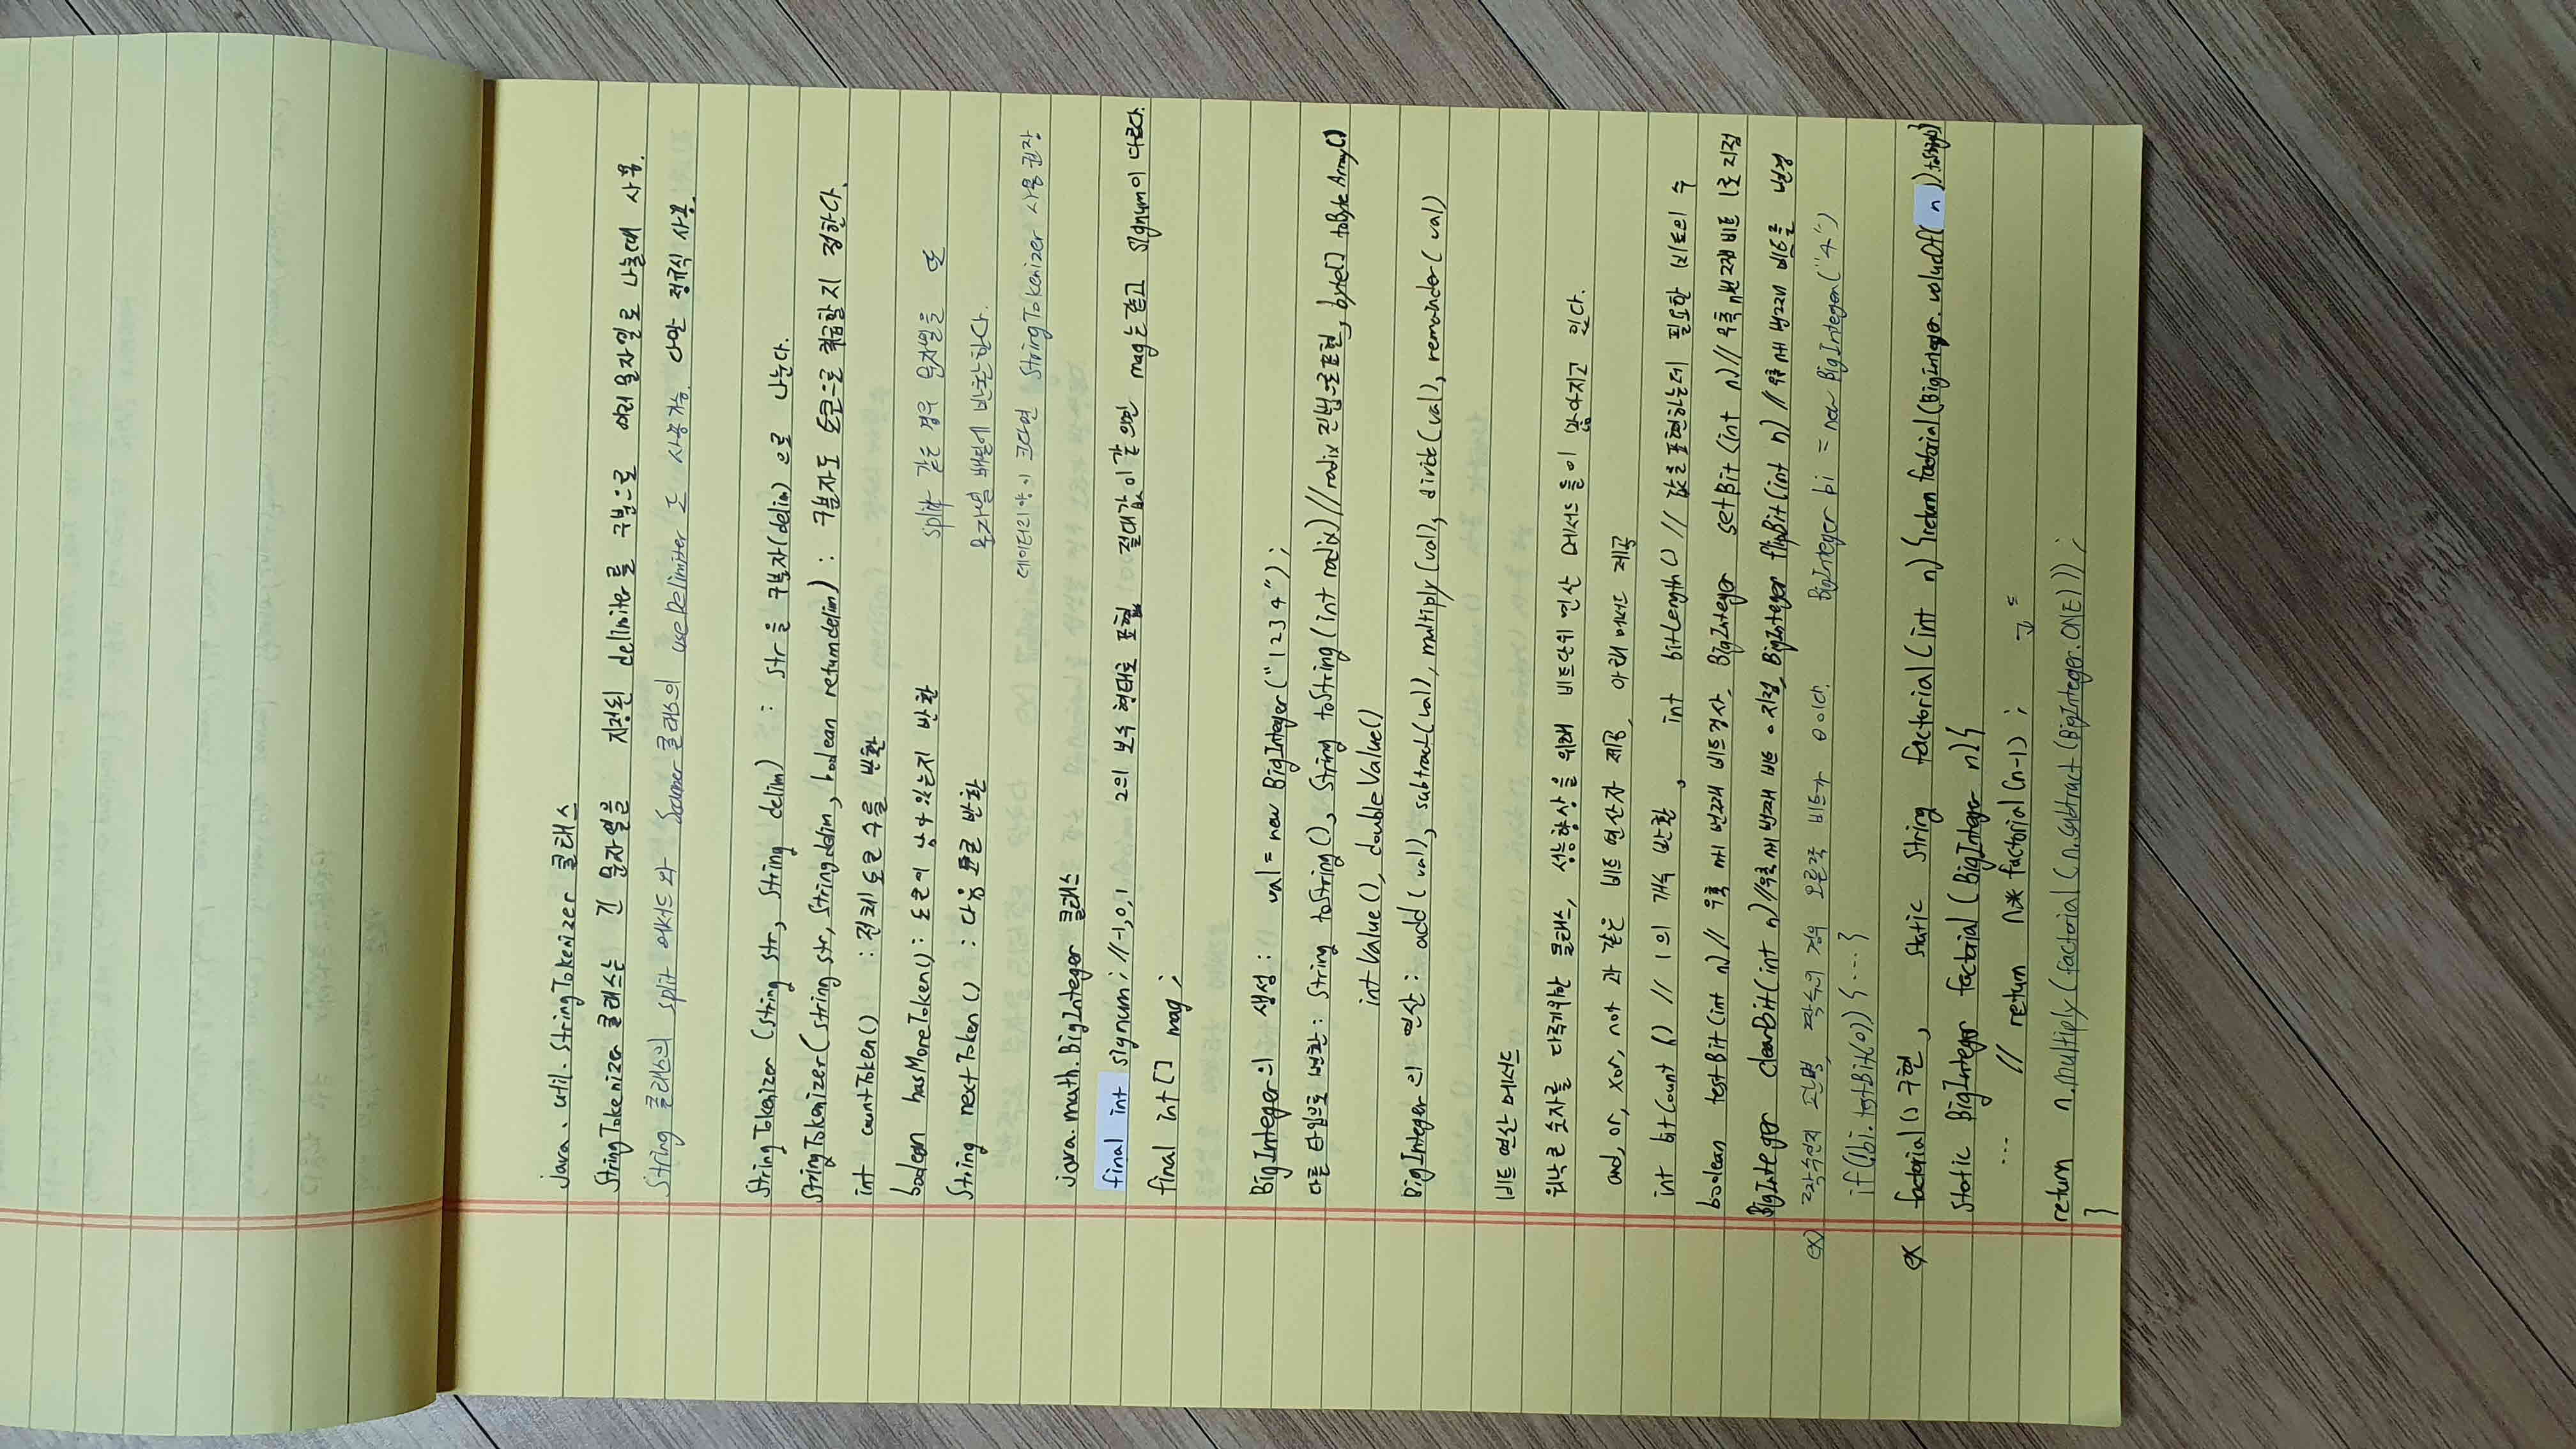 java. util. StringTokenizer 클래스
StringTokenizer 클래스는 긴 문자열을 지정된 delimiter를 구분으로 여러 문자열로 나눌때 사용.
String 클래스의 split 메서드와 Scanner 클래스의 useDelimiter도 사용가능. 다만 정규식 사용.
StringTokenizer (String str, String delim) : str을 구분자(delim)으로 나눈다.
StringTokenizer(string str, String delim, boolean returndelim) : 구분자도 토큰으로 취급할지 정한다.
int countToken() : 전체 토큰 수를 반환
boolean hasMoreToken() : 토큰이 남아 있는지 반환
String nextToken () : 다음 토큰 반환
split 같은 경우 문자열을 또
문자열 배열에 반환한다.
데이터의 양이 크다면 StringTokenizer 사용 권장
java.math.BigInteger 클래스
final int signum; //-1,0,1 2의 보수 형태로 표현, 절대값이 같으면 mag는 같고 signum이 다르다.
final int[] mag;
BigInteger의 생성 : val = new BigInteger("1234");
다른 타입으로 변환 : String toString(), String toString(int radix) //radix 진법으로 표현, byte[] toByteArray()
intValue(), doubleValue()
BigInteger의 연산 : add(val), subtract(val), multiply(val), divide(val), remainder(val)
비트 연산 메서드
워낙 큰 숫자를 다루기위한 클래스, 성능향상을 위해 비트단위 연산 메서드들이 많아지고 있다.
and, or, xor, not 과 같은 비트 연산자 제공, 아래 메서드 제공
int bitCount () // 1의 개수 반환, int bitLength() // 값을 표현하는데 필요한 비트의 수
boolean testBit(int n) // 우측 n+1 번째 비트검사, BigInteger setBit(int n) // 우측 n번째 비트 1로 지정
BigInteger clearBit(int n) //우측 n+1 번째 비트 0 지정, BigInteger flipBit(int n) // 우측 n+1 번째 비트를 변경
ex) 짝수인지 판별, 짝수의 경우 오른쪽 비트가 0이다. BigInteger bi = new BigInteger("4")
if(!bi.testBit(0)) {...}
ex factorial() 구현, static String factorial(int n) {return factorial(BigInteger.valueOf( n )).toString()}
static BigInteger factorial (BigInteger n){
... // return n* factorial(n-1);
return n.multiply(factorial(n.subtract(BigInteger.ONE)));
}